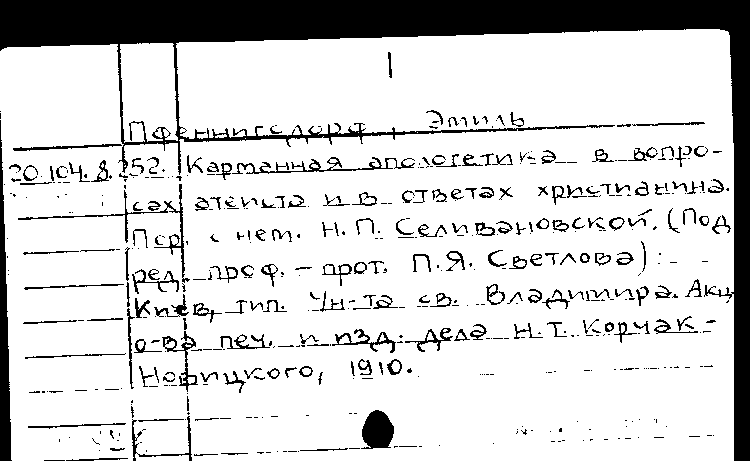 Пфеннигсдорф, Эмиль
20.104.8.252. Карманная апологетика в вопро-
сах атеиста и в ответах христианина.
Пер. с нем. Н.П. Селивановской. (Под
ред. проф. – прот. П.Я. Светлова):
Киев, тип. Ун-та св. Владимира. Акц.
о-ва печ. и изд. дела Н.Т. Корчак-
Новицкого, 1910.